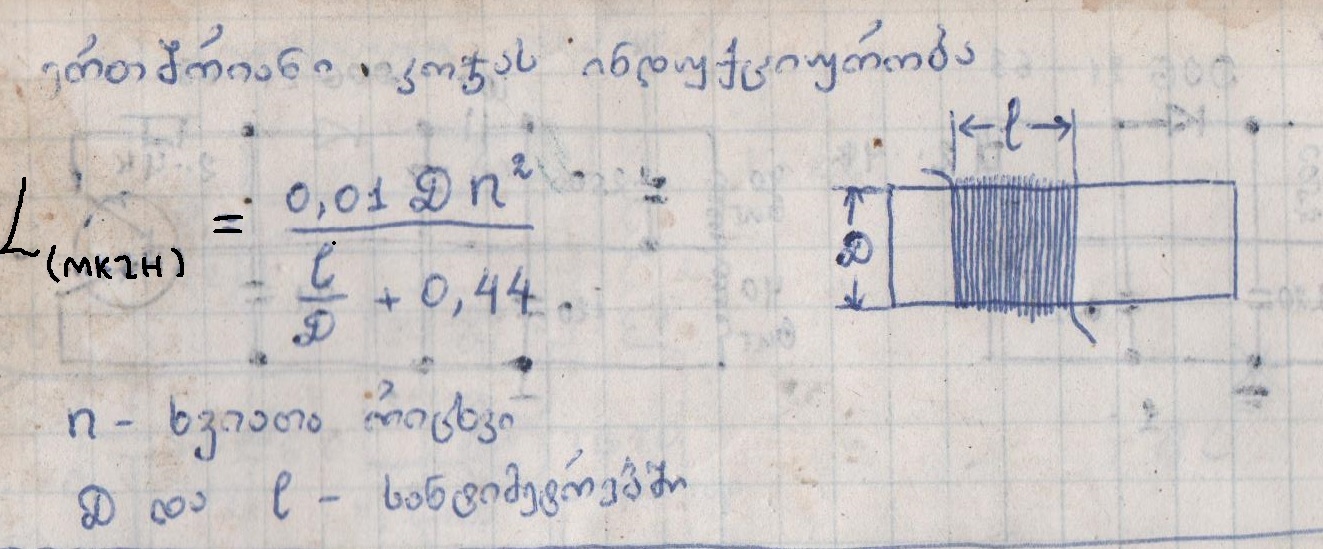 ერთშრიანი კოჭას ინდუქციურობა
L(мкгн) = 0,01 D n² =
l/D + 0,44
l
D
n - ხვიათა რიცხვი
D და l - სანტიმეტრებში